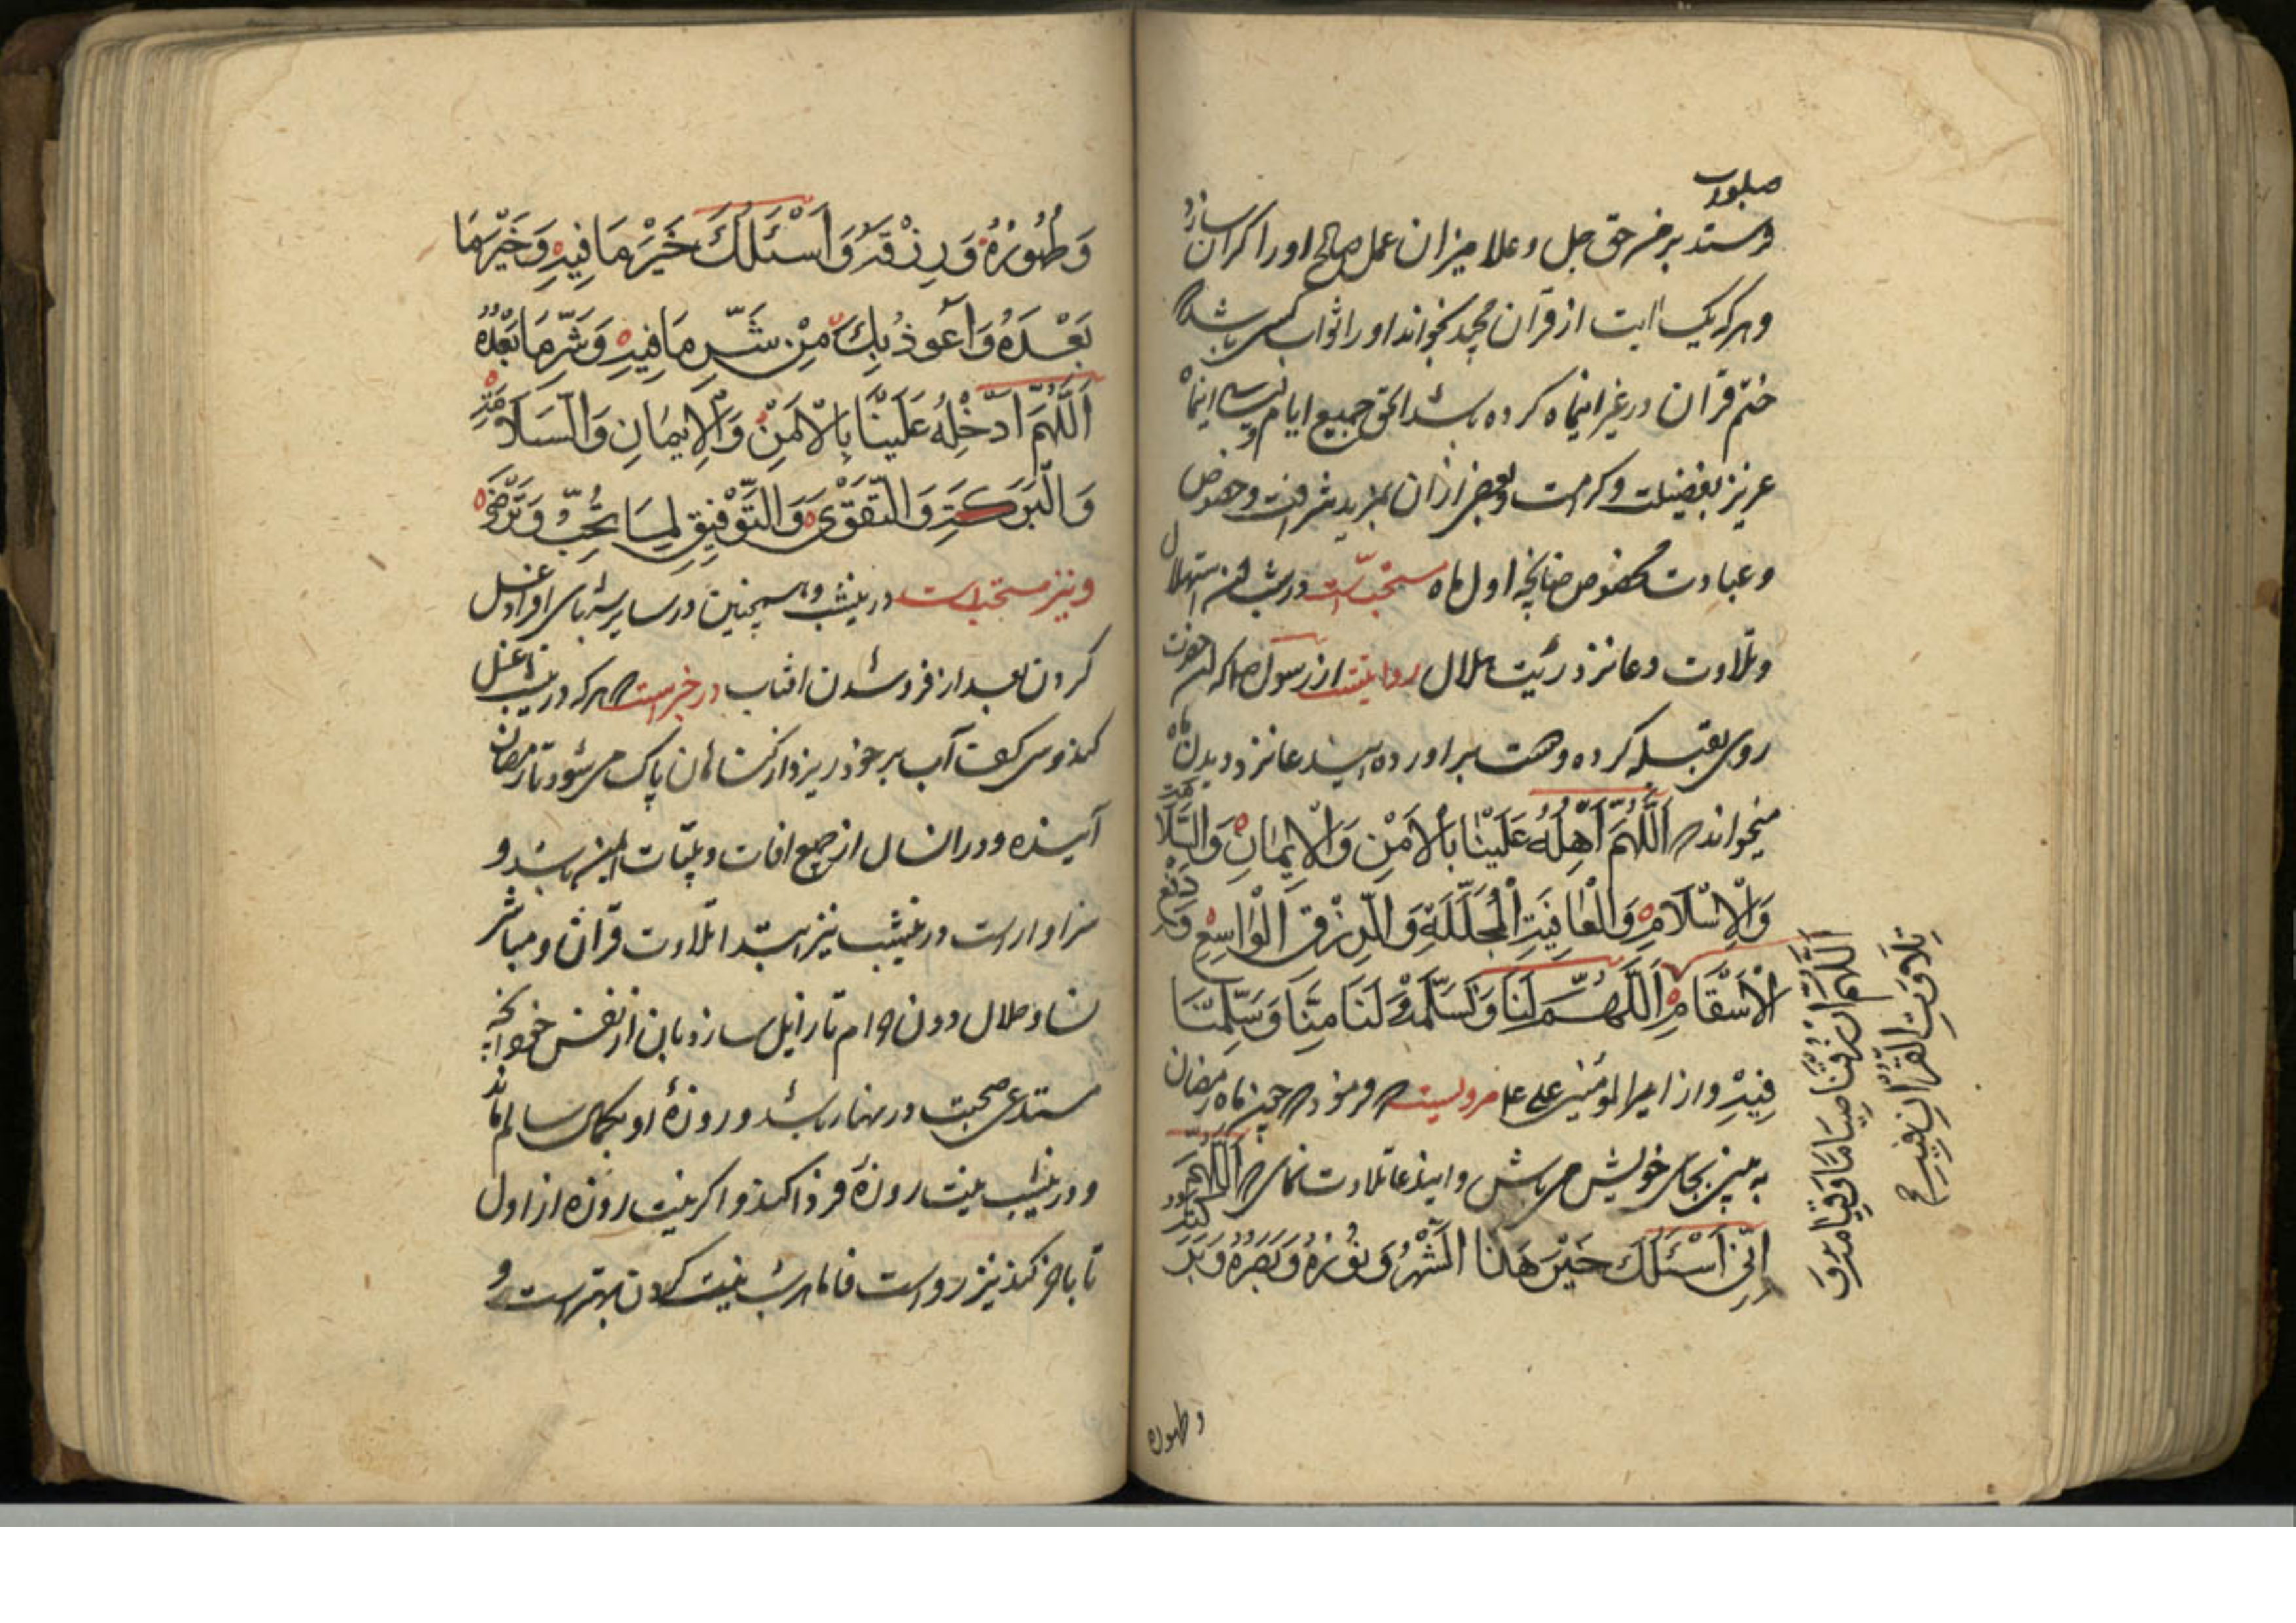 صلوات
فرستد بر من حق جل و علا میزان عمل صالح او را گران سازد
و هر که یک آیت از قرآن مجید بخواند او را ثواب کسی باشد که
ختم قرآن در غیر اینماه کرده باشد الحق جمیع ایام و لیالی اینماه
عزیز بفضیلت و کرامت و بعضی از آن بمزید شرافت و خصوص
و عبادت مخصوص چنانچه اول ماه مستحبّ است در شب استهلال
و تلاوت دعا نزد رؤیت هلال روایتست از رسول ص که آنحضرت
روی بقبله کرده و دست برآورده این دعا نزد دیدن ماه
میخواند که اَللّهُمَّ اَهِلَّهُ عَلَیْنا بِالْاَمْنِ وَالْاِیمانِ وَالسَّلامَةِ
وَالْاِسْلامِ وَالْعافِیَةِ الْمُجَلَّلَةِ وَالرِّزْقِ الْواسِعِ وَدَفْعِ
الْاَسْقامِ اَللّهُمَّ سَلِّمْهُ لَنا وَتَسَلَّمْهُ مِنّا وَسَلِّمْنا
فِیهِ و از امیرالمؤمنین علی ع مرویست که فرمود که چون ماه رمضان
به بینی بجای خویش می باش و این دعا تلاوت نمای که اَللّهُمَّ
اِنّی اَسْئَلُکَ خَیْرَ هذَا الشَّهْرِ وَنُورَهُ وَنَصْرَهُ وَبَرَکَتَهُ
اَللّهُمَّ ارْزُقْنا صِیامَنا وَقِیامَهُ وَ
تِلاوَتِ الْقُرْآنِ فیهِ
و طهوره
وَطَهُورَهُ وَرِزْقَهُ وَاَسْئَلُکَ خَیْرَ ما فیهِ وَخَیْرَ ما
بَعْدَهُ وَاَعُوذُ بِکَ مِنْ شَرِّ ما فیهِ وَشَرِّ ما بَعْدَهُ
اَللّهُمَّ اَدْخِلْهُ عَلَیْنا بِالْاَمْنِ وَالْاِیمانِ وَالسَّلامَةِ
وَالْبَرَکَةِ وَالتَّقْوی وَالتَّوْفِیقِ لِما تُحِبُّ وَتَرْضی
و نیز مستحب است درینشب و همچنین در سایر شبهای افراد غسل
کردن بعد از فرو شدن آفتاب در خبر است که هر که درین شب غسل
کند و سی کف آب بر خود ریزد از گناهان پاک می شود تا رمضان
آینده و در آنسال از جمیع آفات و بلیّات ایمن باشد و
سزاوار است درینشب نیز ابتدا تلاوت قرآن و مباشر
نسا و حلال دون حرام تا زایل سازد بآن از نفس خود آنچه
مستدعی صحبت در نهار باشد و روزۀ او بکمال سالم ماند
و درینشب نیت روزۀ فردا کند و اگر نیت روزه از اول
تا بآخر کند نیز رواست فاما هر شب نیت کردن بهتر است و